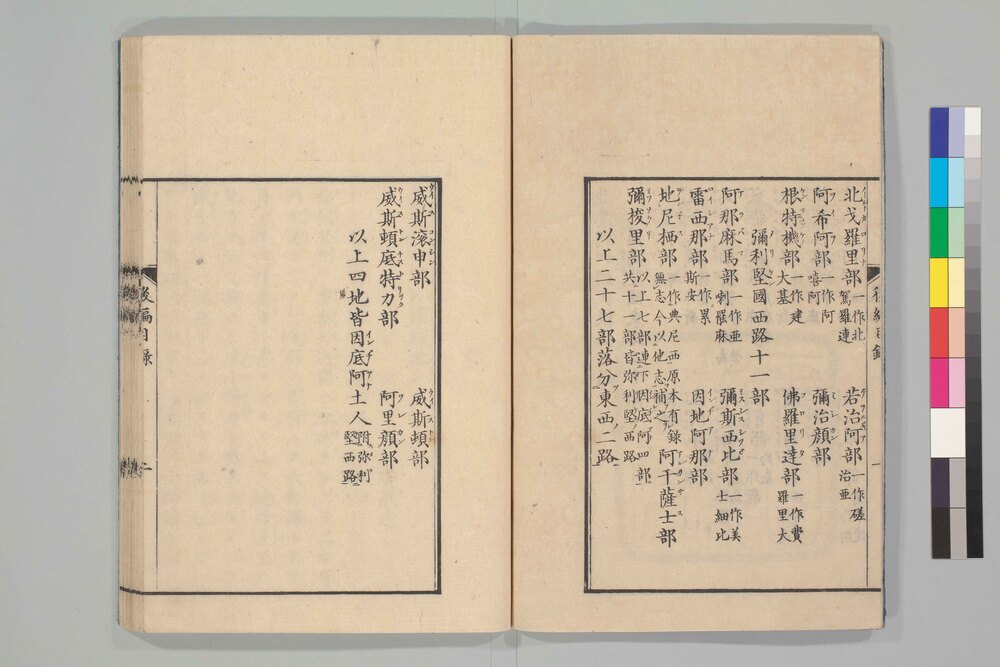 北戈羅里部一作北駕羅連 若治阿部一作磋治亜
阿希阿部一作阿喜阿 彌治顔部
根特機部一作建大基 佛羅里達部一作費羅里大
彌利堅國西路十一部
阿那麻馬部一作亜剌罷麻 彌斯西比部一作美士細比
雷西那部一作累斯安 因地阿那部
地尼栖部一作典尼西原本有録無志今以他志補之 阿干薩士部
彌梭里部以上七部連下因底阿四部共十一部皆弥利堅西路
以上二十七部落分東西二路
威斯滚申部 威斯頓部
威斯頓底特力部 阿里顔部
以上四地皆因底阿土人附弥利堅西路